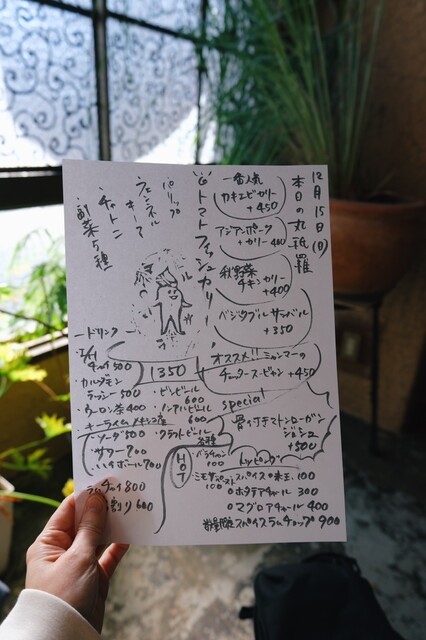 12月15日(日)
本日の丸祇羅
一番人気
カキエビカリー
+450
アジアンポーク
カリー
秋野菜
チキンカリー
+400
ベジタブルサンバル
+350
トマトフィッシュカリー
パリップ
フェンネル
キーマ
チャトニ
副菜5種
1350
オススメ!!ミャンマーの
チェッターヒン +450
special
骨付きマトンローガン
ジョシュ
+500
ードリンクー
チャイ500
・カルダモン
ラッシー500
・ウーロン茶400
・ビンビール
600
・ノンアルビール
600
・クラフトビール
各種
キーライム
ソーダ500
サワー700
ハイボール700
ラムチャイ800
600
HOT
トッピング
・バラチャン
100
100
100
・ホタテアチャール 300
・マグロアチャール 400
スパイスラムチョップ 900